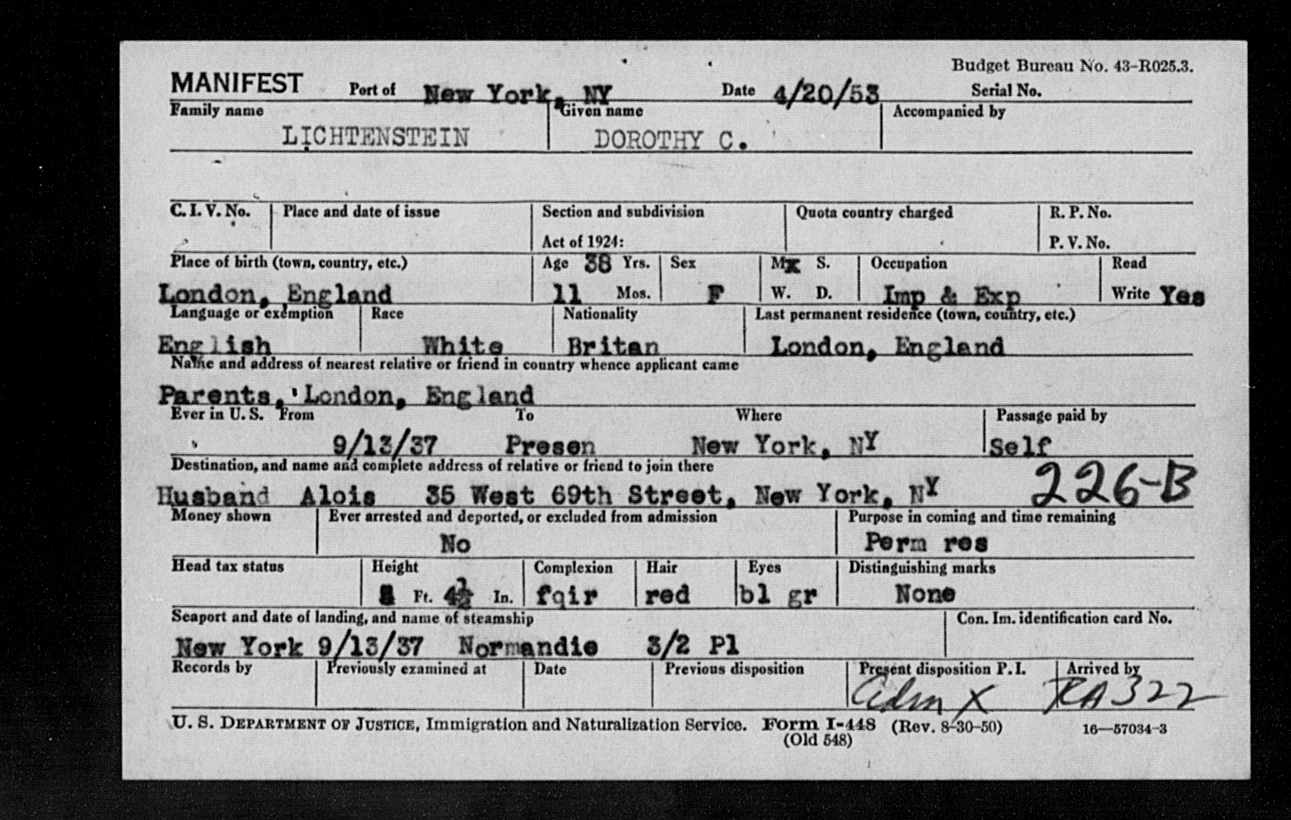 Budget Bureau No. 43-R025.3.
MANIFEST Port of New York, NY Date 4/20/53 Serial No.
Family name Given name Accompanied by
LICHTENSTEIN DOROTHY C.
C. I. V. No. Place and date of issue Section and subdivision Quota country charged R. P. No.
Act of 1924: P. V. No.
Place of birth (town, country, etc.) Age 38 Yrs. Sex M. S. Occupation Read
London, England 11 Mos. F W. D. Imp & Exp Write Yes
Language or exemption Race Nationality Last permanent residence (town, country, etc.)
English White Britan London, England
Name and address of nearest relative or friend in country whence applicant came
Parents, London, England
Ever in U. S. From To Where Passage paid by
9/13/37 Presen New York, NY Self
Destination, and name and complete address of relative or friend to join there
Husband Alois 35 West 69th Street, New York, NY 226-B
Money shown Ever arrested and deported, or excluded from admission Purpose in coming and time remaining
No Perm res
Head tax status Height Complexion Hair Eyes Distinguishing marks
Ft. 4½ In. fqir red bl gr None
Seaport and date of landing, and name of steamship Con. Im. identification card No.
New York 9/13/37 Normandie 3/2 Pl
Records by Previously examined at Date Previous disposition Present disposition P. I. Arrived by
adm X RA 322
U. S. DEPARTMENT OF JUSTICE, Immigration and Naturalization Service. Form I-448 (Rev. 8-30-50) 16—57034-3
(Old 548)